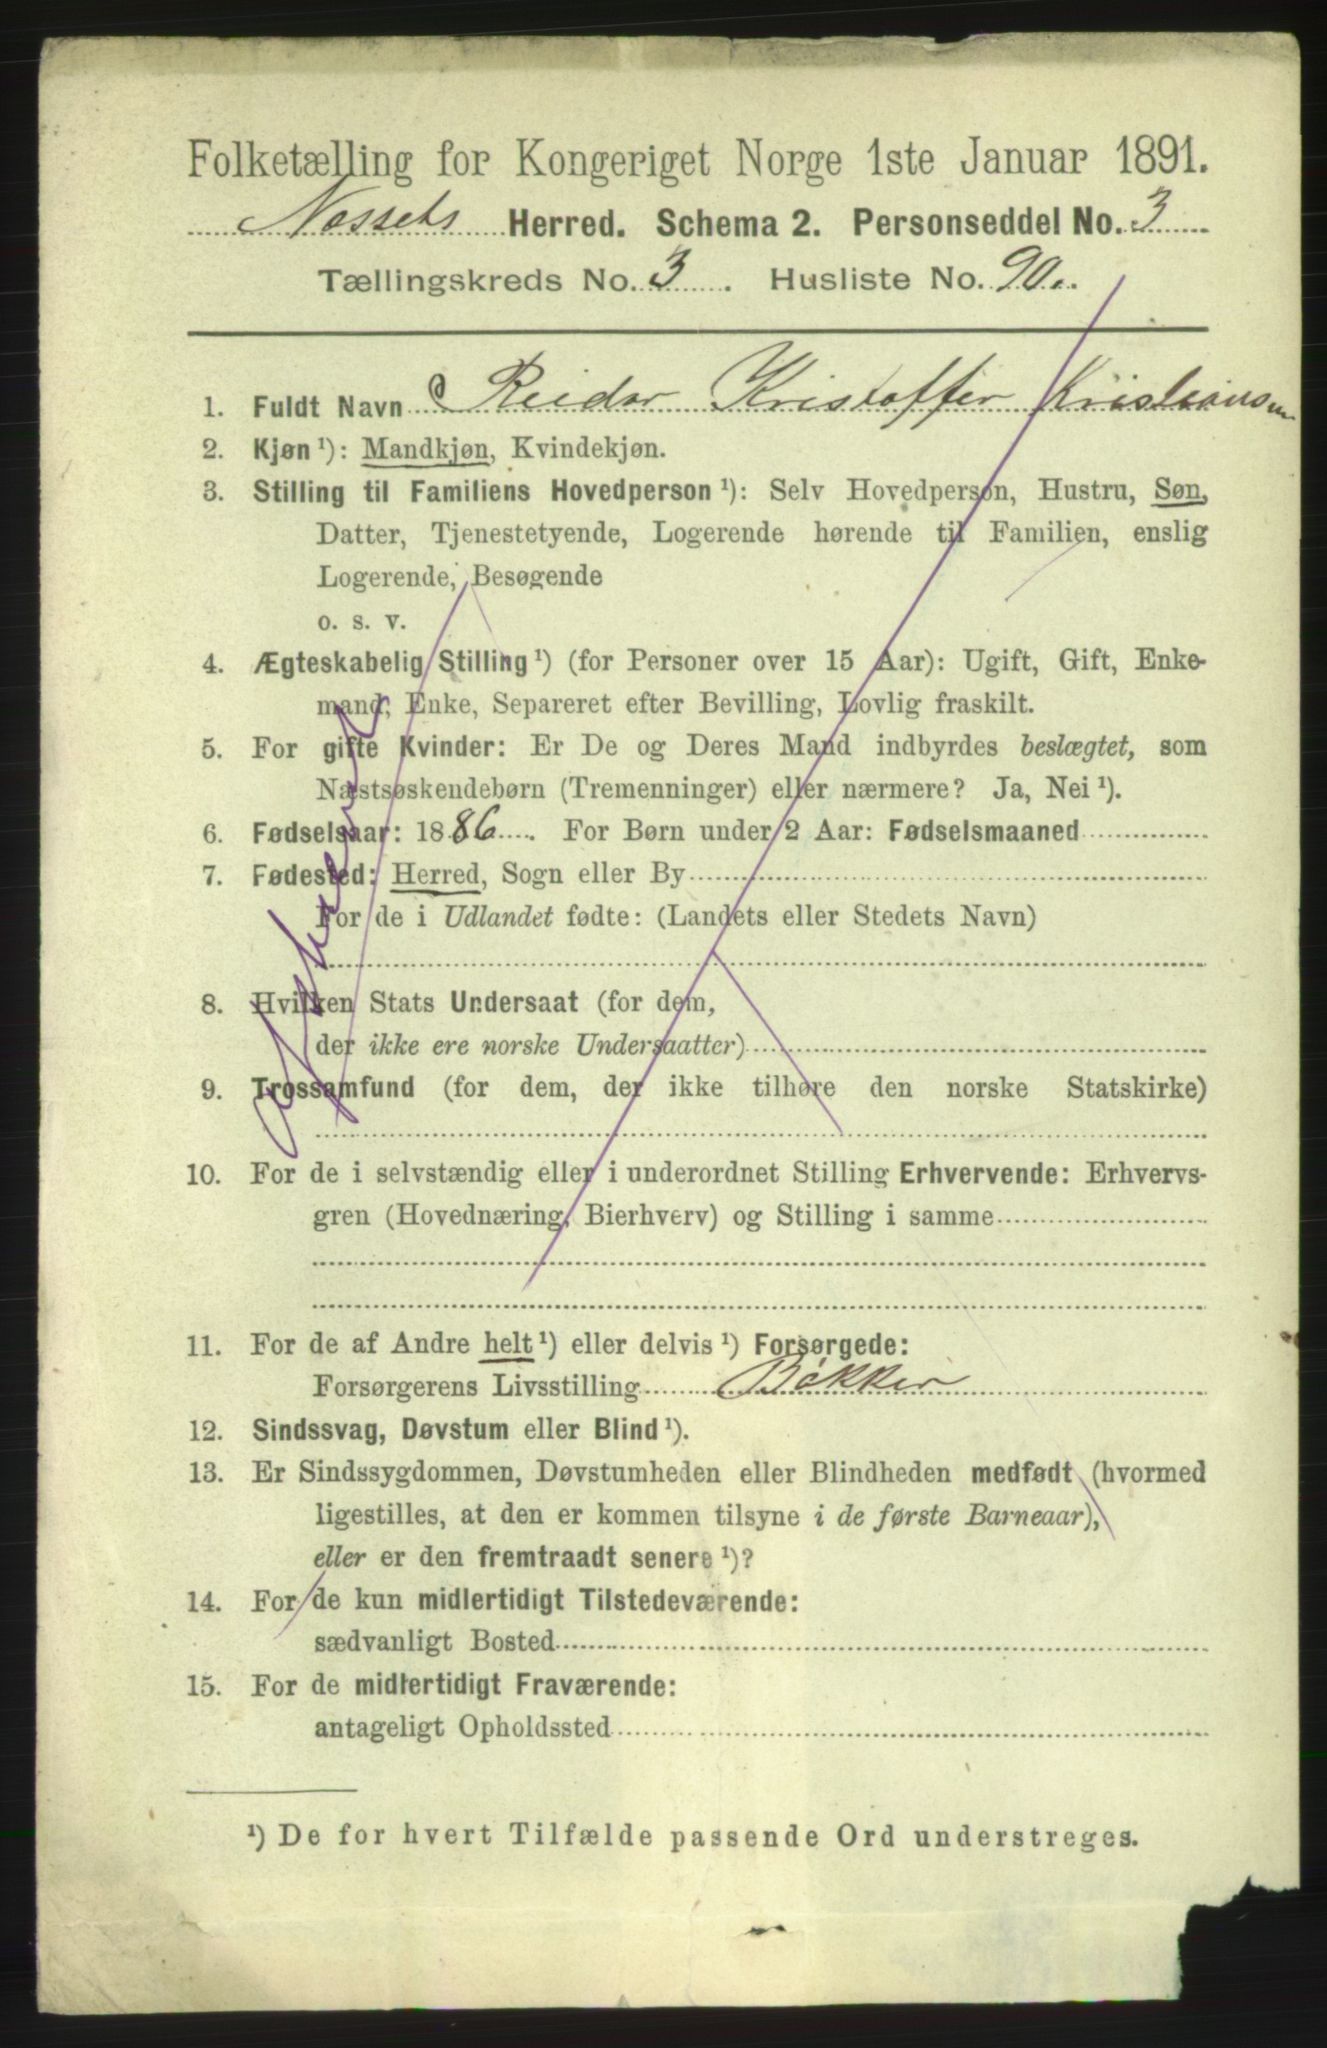 Folketælling for Kongeriget Norge 1ste Januar 1891.
Nossets Herred. Schema 2. Personseddel No. 3
Tællingskreds No. 3. Husliste No. 90.
1. Fuldt Navn Reidar Kristoffer Kristiansen
2. Kjøn ¹): Mandkjøn, Kvindekjøn.
3. Stilling til Familiens Hovedperson ¹): Selv Hovedperson, Hustru, Søn,
Datter, Tjenestetyende, Logerende hørende til Familien, enslig
Logerende, Besøgende
o. s. v.
4. Ægteskabelig Stilling ¹) (for Personer over 15 Aar): Ugift, Gift, Enke-
mand, Enke, Separeret efter Bevilling, Lovlig fraskilt.
5. For gifte Kvinder: Er De og Deres Mand indbyrdes beslægtet, som
Næstsøskendebørn (Tremenninger) eller nærmere? Ja, Nei ¹).
6. Fødselsaar: 1886. For Børn under 2 Aar: Fødselsmaaned
7. Fødested: Herred, Sogn eller By
For de i Udlandet fødte: (Landets eller Stedets Navn)
8. Hvilken Stats Undersaat (for dem,
der ikke ere norske Undersaatter)
9. Trossamfund (for dem, der ikke tilhøre den norske Statskirke)
10. For de i selvstændig eller i underordnet Stilling Erhvervende: Erhvervs-
gren (Hovednæring, Bierhverv) og Stilling i samme
11. For de af Andre helt ¹) eller delvis ¹) Forsørgede:
Forsørgerens Livsstilling Bökker
12. Sindssvag, Døvstum eller Blind ¹).
13. Er Sindssygdommen, Døvstumheden eller Blindheden medfødt (hvormed
ligestilles, at den er kommen tilsyne i de første Barneaar),
eller er den fremtraadt senere ¹)?
14. For de kun midlertidigt Tilstedeværende:
sædvanligt Bosted
15. For de midlertidigt Fraværende:
antageligt Opholdssted
¹) De for hvert Tilfælde passende Ord understreges.